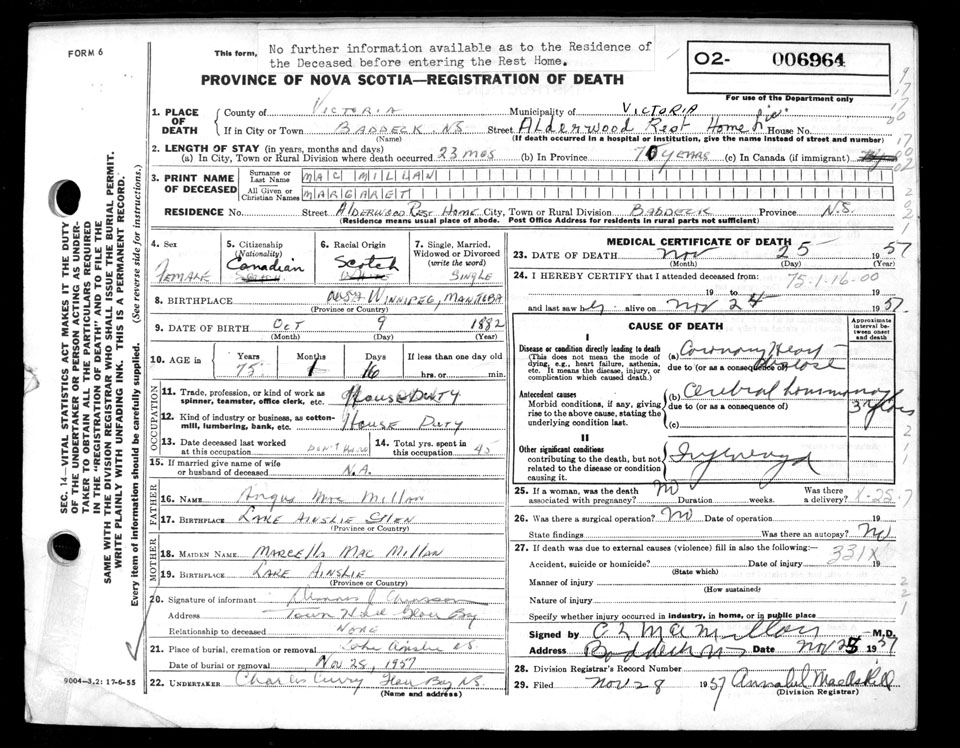 FORM 6
This form,
No further information available as to the Residence of
the Deceased before entering the Rest Home.
O2- 006964
For use of the Department only
PROVINCE OF NOVA SCOTIA—REGISTRATION OF DEATH
1. PLACE OF DEATH
County of VICTORIA Municipality of VICTORIA
If in City or Town BADDECK N.S Street Alderwood Rest Home House No.
(Name) (If death occurred in a hospital or institution, give the name instead of street and number)
2. LENGTH OF STAY (in years, months and days)
(a) In City, Town or Rural Division where death occurred 23 mos (b) In Province YEARS (c) In Canada (if immigrant)
3. PRINT NAME OF DECEASED
Surname or Last Name MAC MILLAN
All Given or Christian Names MARGARET
RESIDENCE No. Street ALDERWOOD REST HOME City, Town or Rural Division BADDECK Province N.S.
(Residence means usual place of abode. Post Office Address for residents in rural parts not sufficient)
4. Sex FEMALE
5. Citizenship (Nationality) Canadian
6. Racial Origin Scotch
7. Single, Married, Widowed or Divorced (write the word) SINGLE
8. BIRTHPLACE WINNIPEG, MANITOBA
(Province or Country)
9. DATE OF BIRTH OCT 9 1882
(Month) (Day) (Year)
10. AGE in Years Months Days If less than one day old
75 1 16 hrs. or min.
OCCUPATION
11. Trade, profession, or kind of work as spinner, teamster, office clerk, etc. HOUSE DUTY
12. Kind of industry or business, as cotton-mill, lumbering, bank, etc. HOUSE DUTY
13. Date deceased last worked at this occupation DON'T KNOW
14. Total yrs. spent in this occupation 45
15. If married give name of wife or husband of deceased N.A.
FATHER
16. NAME Angus Mac Millan
17. BIRTHPLACE LAKE AINSLIE GLEN
(Province or Country)
MOTHER
18. MAIDEN NAME MARCELLA MAC MILLAN
19. BIRTHPLACE LAKE AINSLIE
(Province or Country)
20. Signature of informant
Address Town Hall Glace Bay
Relationship to deceased NONE
21. Place of burial, cremation or removal Lake Ainslie
Date of burial or removal NOV 28, 1957
22. UNDERTAKER Charles Curry Glace Bay N.S.
(Name and address)
9004—3,2: 17-6-55
SEC. 14—VITAL STATISTICS ACT MAKES IT THE DUTY
OF THE UNDERTAKER OR PERSON ACTING AS UNDER-
TAKER TO OBTAIN ALL THE PARTICULARS REQUIRED
IN THE "REGISTRATION OF DEATH" AND TO FILE THE
SAME WITH THE DIVISION REGISTRAR WHO SHALL ISSUE THE BURIAL PERMIT.
WRITE PLAINLY WITH UNFADING INK. THIS IS A PERMANENT RECORD.
Every item of information should be carefully supplied. (See reverse side for instructions.)
MEDICAL CERTIFICATE OF DEATH
23. DATE OF DEATH Nov 25 1957
(Month) (Day) (Year)
24. I HEREBY CERTIFY that I attended deceased from:
75-1-16-00
19 to 19
and last saw h alive on Nov 24 1957
CAUSE OF DEATH
Approximate interval between onset and death
I
Disease or condition directly leading to death
(This does not mean the mode of dying, e.g., heart failure, asthenia, etc. It means the disease, injury, or complication which caused death.)
(a) Coronary
due to (or as a consequence of)
Antecedent causes
Morbid conditions, if any, giving rise to the above cause, stating the underlying condition last.
(b) Cerebral
due to (or as a consequence of)
(c)
II
Other significant conditions
contributing to the death, but not related to the disease or condition causing it.
25. If a woman, was the death associated with pregnancy? No Duration weeks. Was there a delivery?
26. Was there a surgical operation? No Date of operation 19
State findings Was there an autopsy? No
27. If death was due to external causes (violence) fill in also the following:—
331X
Accident, suicide or homicide? Date of injury 19
(State which)
Manner of injury
(How sustained)
Nature of injury
Specify whether injury occurred in industry, in home, or in public place
Signed by C L MacMillan M.D.
Address Baddeck NS Date Nov 25 1957
28. Division Registrar's Record Number
29. Filed Nov 28 1957 Annabel MacAskill
(Division Registrar)